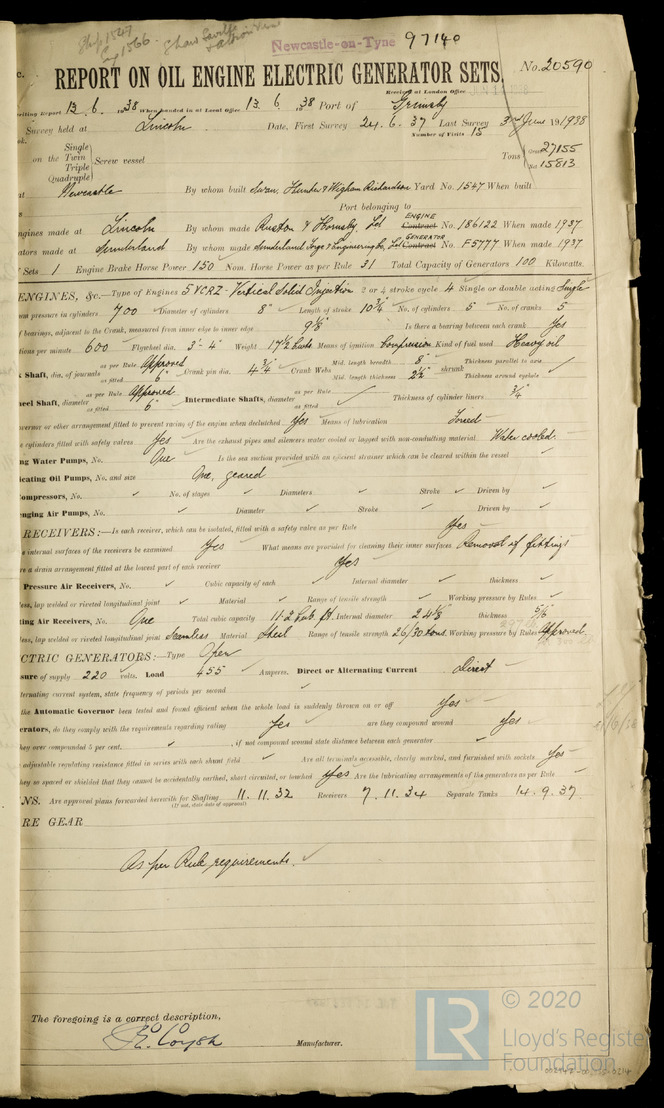 Ship 1547
Eng 1566
Shaw Savill
& Albion
Newcastle-on-Tyne 97140
REPORT ON OIL ENGINE ELECTRIC GENERATOR SETS.
No. 20590
Received at London Office
writing Report 13. 6. 1938 When handed in at Local Office 13. 6. 38 Port of Grimsby
Survey held at Lincoln. Date, First Survey 24. 6. 37 Last Survey 3rd June 1938
Number of Visits 15
Single
on the Twin Screw vessel
Triple
Quadruple
Tons Gross 27155
Net 15813
at Newcastle By whom built Swan, Hunter & Wigham Richardson Yard No. 1547 When built
Port belonging to
ngines made at Lincoln By whom made Ruston & Hornsby, Ltd ENGINE Contract No. 186122 When made 1937
ators made at Sunderland By whom made Sunderland Forge & Engineering Co, Ltd GENERATOR Contract No. F5777 When made 1937
Sets 1 Engine Brake Horse Power 150 Nom. Horse Power as per Rule 31 Total Capacity of Generators 100 Kilowatts.
ENGINES, &c.—Type of Engines 5 VCRZ - Vertical Solid Injection 2 or 4 stroke cycle 4 Single or double acting Single
um pressure in cylinders 700 Diameter of cylinders 8" Length of stroke 10 3/4" No. of cylinders 5 No. of cranks 5
f bearings, adjacent to the Crank, measured from inner edge to inner edge 9 1/8" Is there a bearing between each crank Yes
utions per minute 600 Flywheel dia. 3'-4" Weight 17 1/2 cwts Means of ignition Compression Kind of fuel used Heavy oil
k Shaft, dia. of journals as per Rule Approved as fitted 6" Crank pin dia. 4 3/4" Crank Webs Mid. length breadth 8" Mid. length thickness 2 1/2" shrunk Thickness parallel to axis Thickness around eyehole
heel Shaft, diameter as per Rule Approved as fitted 6" Intermediate Shafts, diameter as per Rule as fitted Thickness of cylinder liners 3/4"
overnor or other arrangement fitted to prevent racing of the engine when declutched Yes Means of lubrication Forced
e cylinders fitted with safety valves Yes Are the exhaust pipes and silencers water cooled or lagged with non-conducting material Water cooled.
ng Water Pumps, No. One Is the sea suction provided with an efficient strainer which can be cleared within the vessel
icating Oil Pumps, No. and size One, geared
ompressors, No. No. of stages Diameters Stroke Driven by
enging Air Pumps, No. Diameter Stroke Driven by
RECEIVERS:—Is each receiver, which can be isolated, fitted with a safety valve as per Rule Yes
e internal surfaces of the receivers be examined Yes What means are provided for cleaning their inner surfaces Removal of fittings
re a drain arrangement fitted at the lowest part of each receiver Yes
Pressure Air Receivers, No. Cubic capacity of each Internal diameter thickness
less, lap welded or riveted longitudinal joint Material Range of tensile strength Working pressure by Rules
ting Air Receivers, No. One Total cubic capacity 11.2 Cub. ft. Internal diameter 24 1/8 thickness 5/16
less, lap welded or riveted longitudinal joint Seamless Material Steel Range of tensile strength 26/30 tons. Working pressure by Rules Approved
CTRIC GENERATORS:—Type Open
sure of supply 220 volts. Load 455 Amperes. Direct or Alternating Current Direct
lternating current system, state frequency of periods per second
the Automatic Governor been tested and found efficient when the whole load is suddenly thrown on or off Yes
erators, do they comply with the requirements regarding rating Yes are they compound wound Yes
they over compounded 5 per cent. , if not compound wound state distance between each generator
adjustable regulating resistance fitted in series with each shunt field Are all terminals accessible, clearly marked, and furnished with sockets Yes
they so spaced or shielded that they cannot be accidentally earthed, short circuited, or touched Yes Are the lubricating arrangements of the generators as per Rule
NS. Are approved plans forwarded herewith for Shafting 11. 11. 32 Receivers 7. 11. 34 Separate Tanks 14. 9. 37
(If not, state date of approval)
RE GEAR
As per Rule requirements.
The foregoing is a correct description,
Manufacturer.
LR © 2020
Lloyd's Register
Foundation